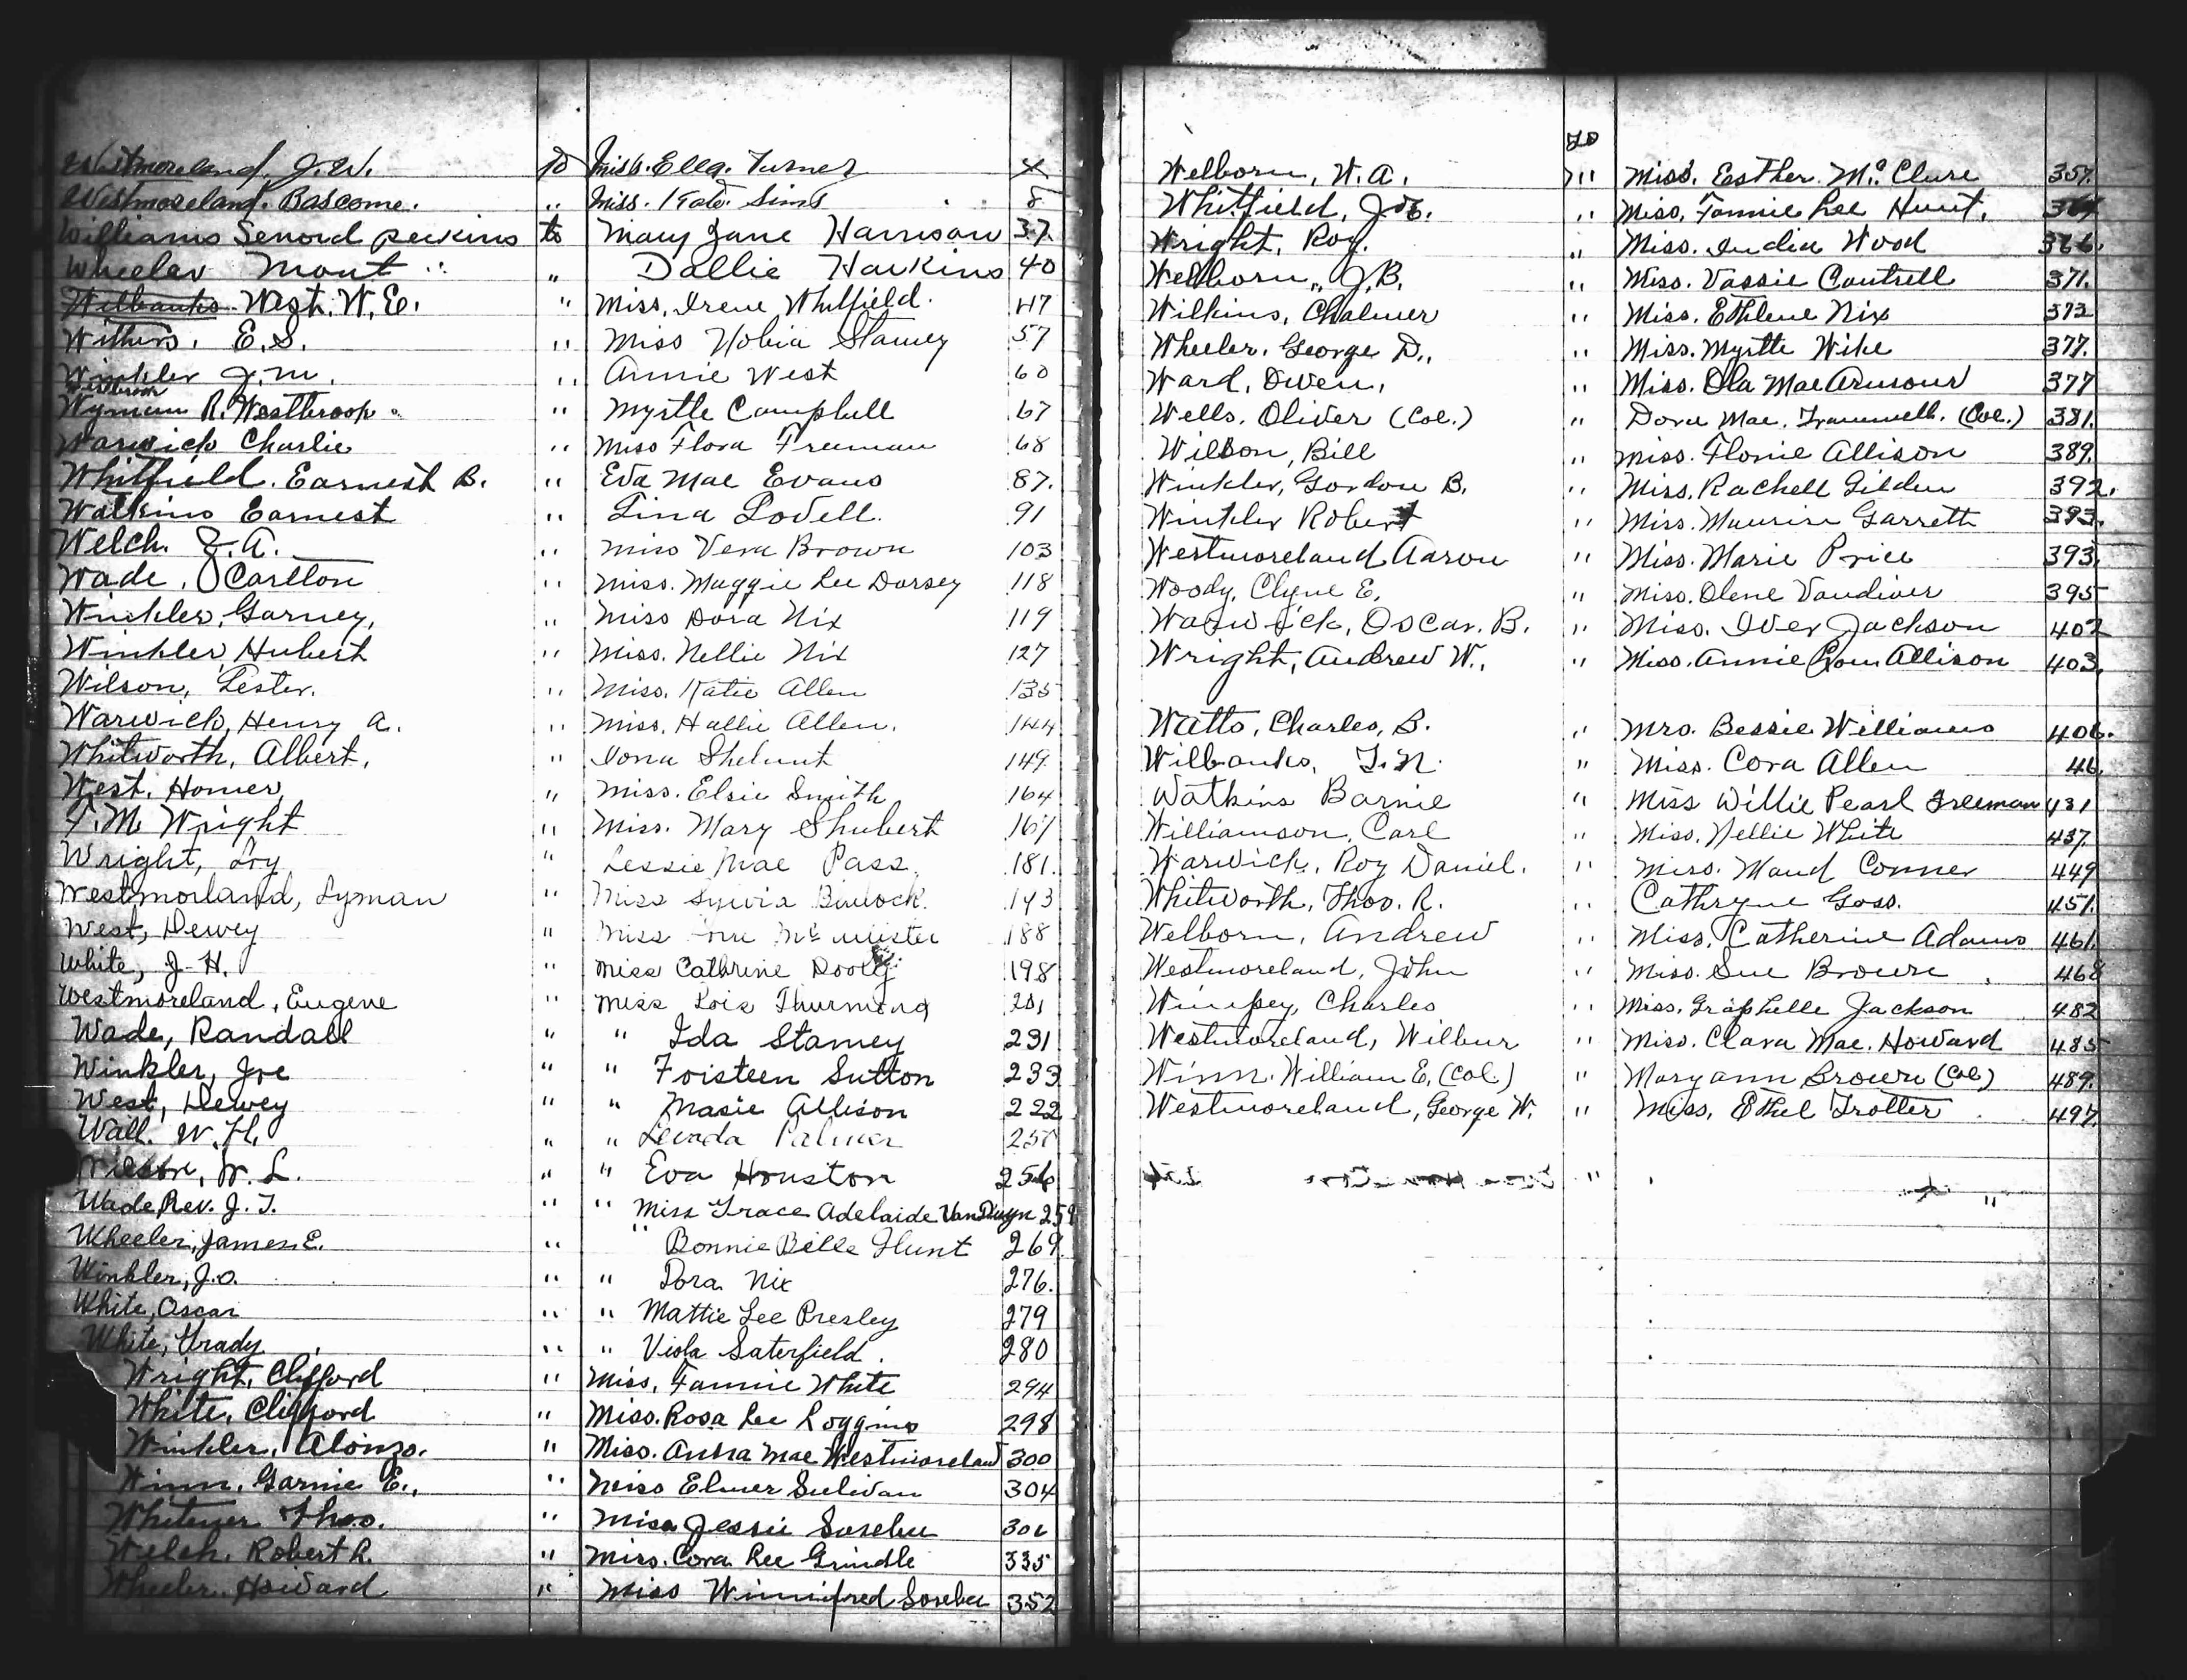 Westmoreland, J.W. to Miss. Ella. Turner X
Westmoreland. Bascome. " Miss. Kate. Sims 8
Williams Senord perkins to Mary Jane Harrison 37
Wheeler Mont " Dallie Harkins 40
Wilbanks West. W.E. " Miss. Irene Whitfield. 47
Withers. E.S. " Miss Nobia Stamey 57
Winkler J.M. " Annie West 60
Westbrook
Wyman R. Westbrook " Myrtle Campbell 67
Warwick Charlie " Miss Flora Freeman 68
Whitfield. Earnest B. " Eva Mae Evans 87.
Watkins Earnest " Lina Lovell. 91
Welch. J.A. " Miss Vera Brown 103
Wade, Carlton " Miss. Maggie Lee Dorsey 118
Winkler, Garney, " Miss Dora Nix 119
Winkler, Hubert " Miss. Nellie Nix 127
Wilson, Lester. " Miss. Katie Allen 135
Warwick, Henry A. " Miss. Hallie Allen. 144
Whitworth, Albert, " Iona Shelnut 149
West. Homer " Miss. Elsie Smith 164
T.M. Wright " Miss. Mary Shubert 167
Wright, Ivy " Lessie Mae Pass. 181.
Westmorland, Lyman " Miss Sylvia 143
West, Dewey " Miss 188
White, J-H. " Miss Cathrine Dooly 198
Westmoreland, Eugene " Miss Lois Thurmond 201
Wade, Randall " " Ida Stamey 231
Winkler, Joe " " Foisteen Sutton 233
West, Dewey " " Masie Allison 222
Wall. W.H. " " Palmer
Wilson, W.L. " " Eva Houston 256
Wade Rev. J.T. " " Miss Grace Adelaide VanDuyn 259
Wheeler, James E. " " Bonnie Bille Hunt 269
Winkler, J.O. " " Dora Nix 276.
White, Oscar " " Mattie Lee Presley 279
White, Grady " " Viola Saterfield. 280
Wright, Clifford " Miss. Fannie White 294
White, Clifford " Miss. Rosa Lee Loggins 298
Winkler, Alonzo. " Miss. Autra Mae Westmoreland 300
Winn, Garnie E., " Miss Elmer Sulivan 304
Whitener Theo. " Miss Jessie Sosebee 306
Welch. Robert R. " Miss. Cora Lee Grindle 335
Wheeler. Howard " Miss Winnifred Sosebee 352
to
Welborn, W.A. " Miss. Esther. McClure 357.
Whitfield, Joe. " Miss. Fannie Lee Hunt. 364
Wright, Roy. " Miss. India Wood 366.
Welborn, J.B. " Miss. Vassie Cantrell 371.
Wilkins, Chalmer " Miss. Ethlene Nix 373
Wheeler. George D., " Miss. Myrtle Wike 377.
Ward, Owen, " Miss. Ola Mae Armour 377
Wells. Oliver (Col.) " Dora Mae. Trammell. (Col.) 381.
Wilson, Bill " Miss. Flonie Allison 389.
Winkler, Gordon B. " Miss. Rachell Gilden 392.
Winkler Robert " Miss. Maurine Garrett 393.
Westmoreland Aaron " Miss. Marie Price 393.
Woody, Clyne E. " Miss. Olene Vandiver 395
Warwick, Oscar. B. " Miss. Iver Jackson 402
Wright, Andrew W., " Miss. Annie Lou Allison 403.
Watts, Charles, B. " Mrs. Bessie Williams 406.
Wilbanks, T.N. " Miss. Cora Allen 46
Watkins Barnie " Miss Willie Pearl Freeman 431
Williamson, Carl " Miss. Nellie White 437.
Warwick, Roy Daniel. " Miss. Maud Conner 449
Whitworth, Thos. R. " Cathryne Goss. 451.
Welborn, Andrew " Miss. Catherine Adams 461.
Westmoreland, John " Miss. Sue Brown 468
Wimpey, Charles " Miss. Graphelle Jackson 482
Westmoreland, Wilbur " Miss. Clara Mae. Howard 485
Winn. William E. (Col.) " Mary Ann Brown (Col.) 489.
Westmoreland, George W. " Miss. Ethel Trotter 497.